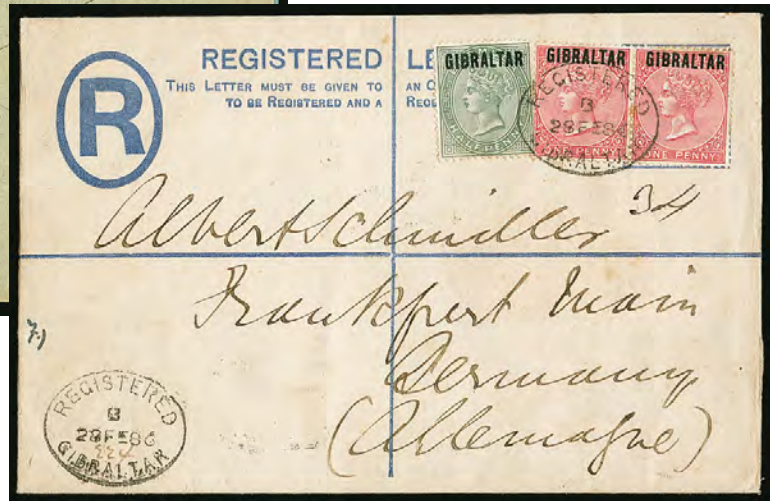 REGISTERED LE
THIS LETTER MUST BE GIVEN TO AN O
TO BE REGISTERED AND A REC
R
GIBRALTAR GIBRALTAR GIBRALTAR
HALFPENNY ONE PENNY ONE PENNY
REGISTERED
B
28 FE 86
GIBRALTAR
34
Albert Schindler
Frankfort Main
Germany
(Allemagne)
REGISTERED
B
28 FE 86
GIBRALTAR